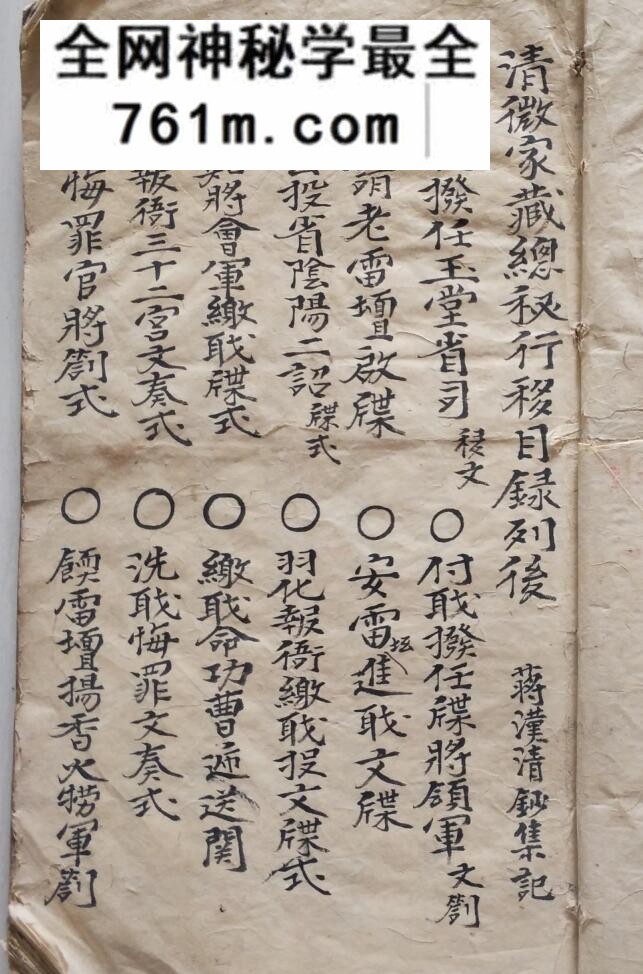 全网神秘学最全
761m.com
清微家藏總秘行移目録列後 蒋漢清鈔集記
撥任玉堂省司移文
〇付职撥任牒將領軍文劄
老雷壇啟牒
〇安雷坛進职文牒
投省陰陽二詔牒式
〇羽化報衙繳职投文牒式
將會軍繳职牒式
〇繳职命功曹遞送関
報衙三十二宮文奏式
〇洗职悔罪文奏式
悔罪官將劄式
〇餪雷壇揚香火犒軍劄